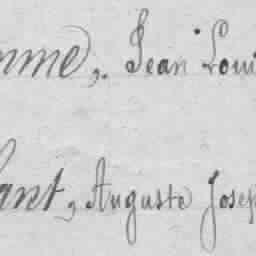 nme, Jean Loui
ant, Auguste Josep